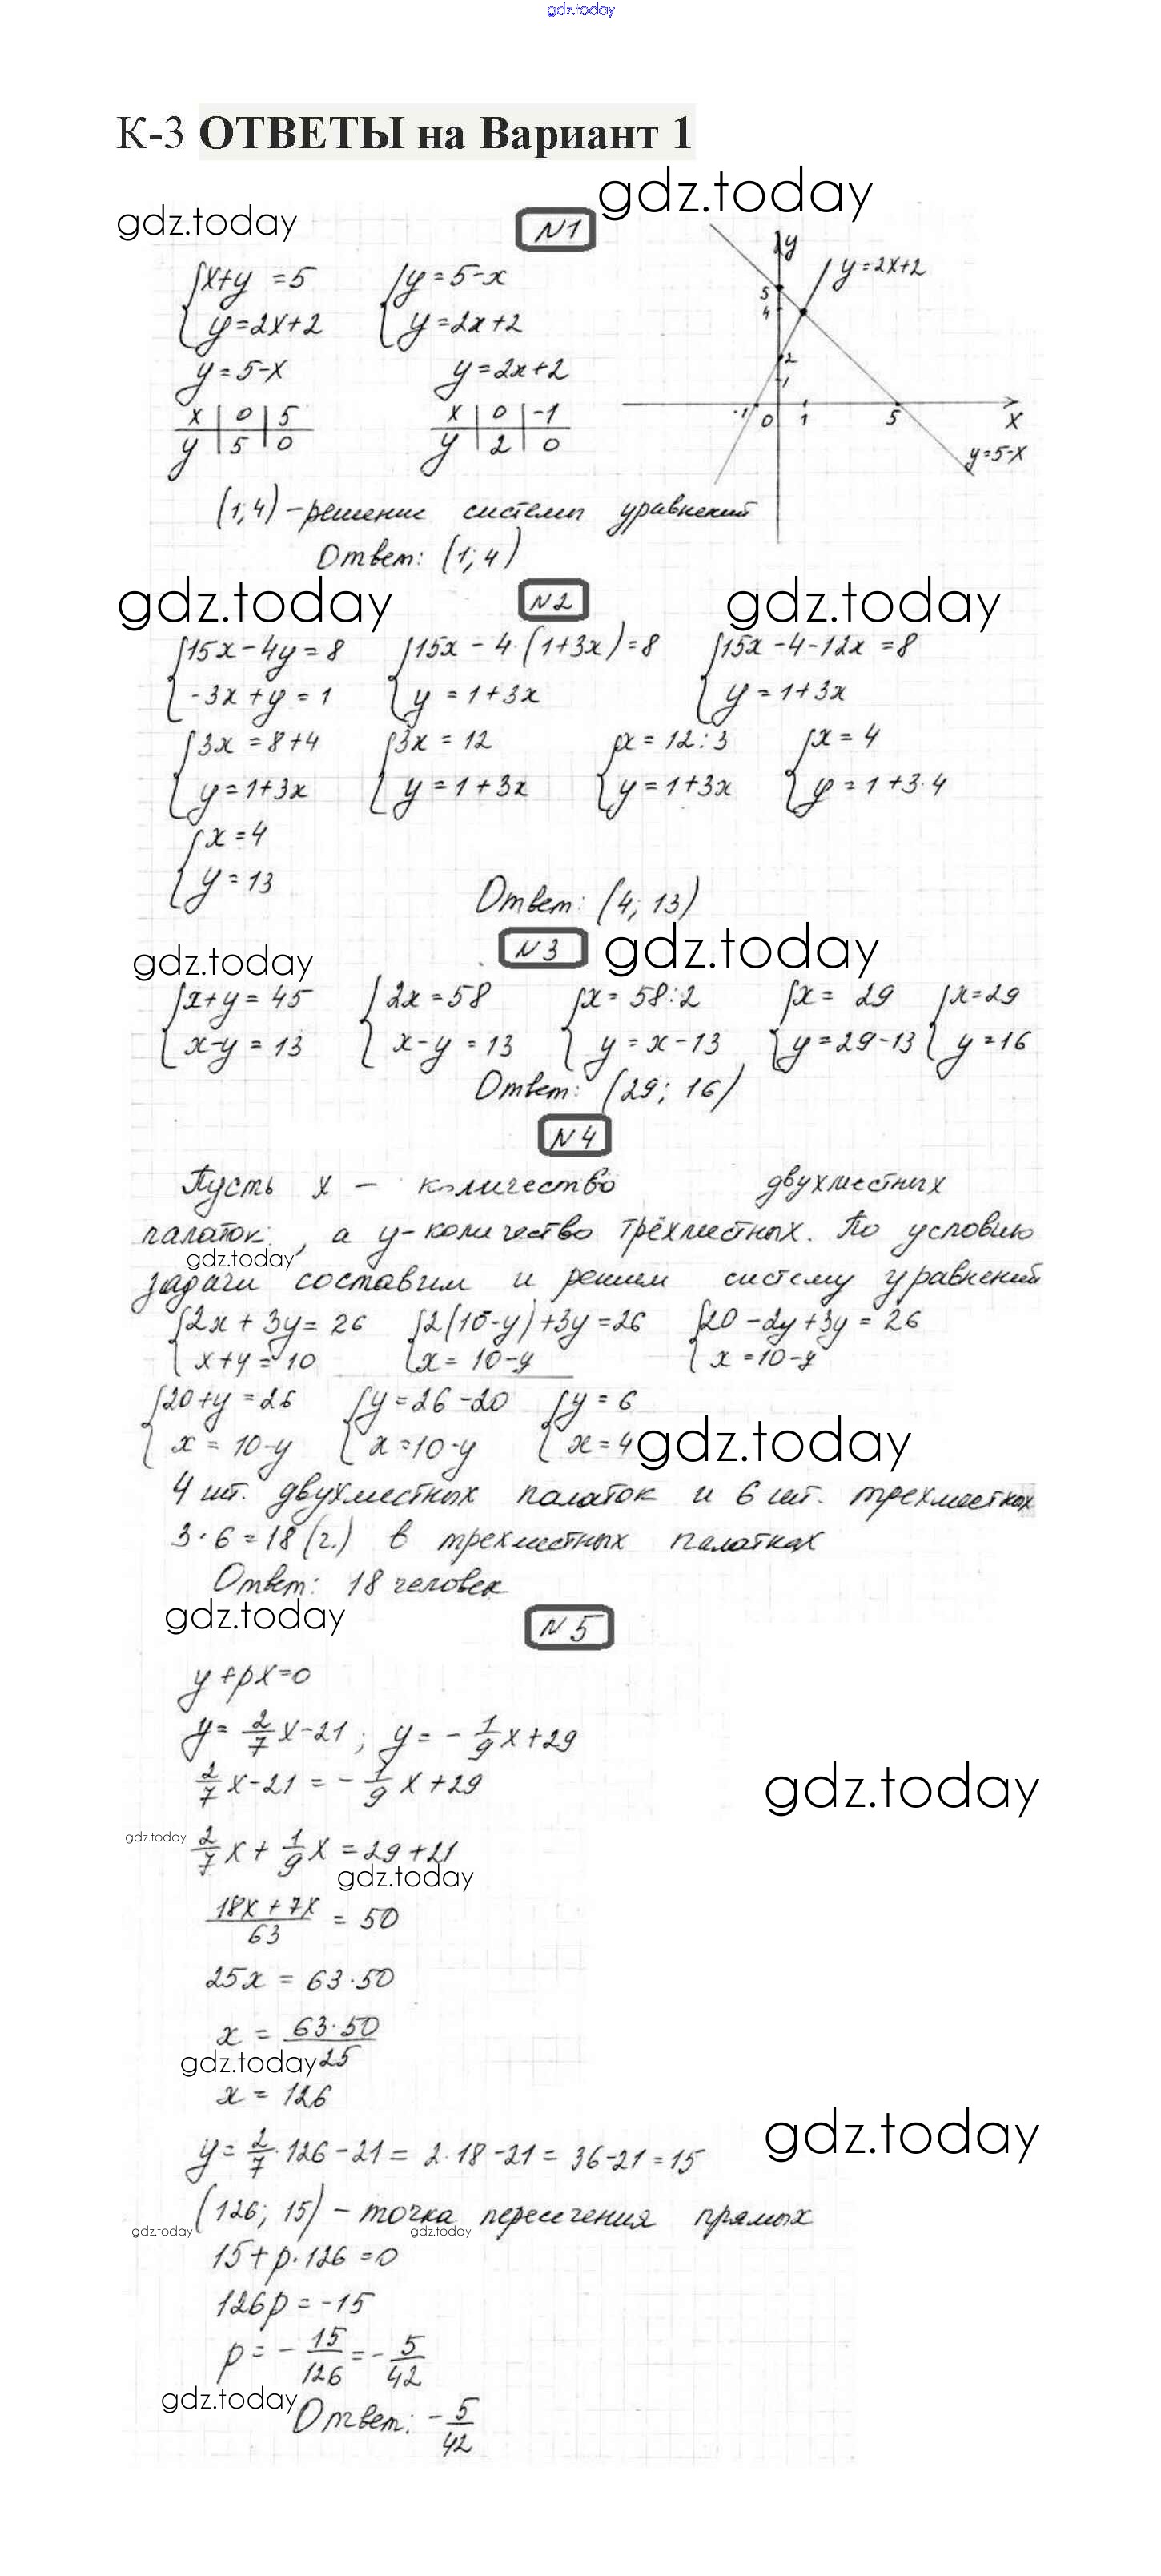 gdz.today
К-3 ОТВЕТЫ на Вариант 1
gdz.today
gdz.today
N1
{x+y =5 {y=5-x
{y=2x+2 {y=2x+2
y=5-x y=2x+2
x | 0 | 5 x | 0 | -1
y | 5 | 0 y | 2 | 0
y
y=2x+2
5
4
2
1
-1 0 1 5 x
y=5-x
(1;4) -решение системы уравнений
Ответ: (1;4)
gdz.today N2 gdz.today
{15x-4y=8 {15x-4·(1+3x)=8 {15x-4-12x=8
{-3x+y=1 {y=1+3x {y=1+3x
{3x=8+4 {3x=12 {x=12:3 {x=4
{y=1+3x {y=1+3x {y=1+3x {y=1+3·4
{x=4
{y=13
Ответ: (4; 13)
gdz.today N3 gdz.today
{x+y=45 {2x=58 {x=58:2 {x=29 {x=29
{x-y=13 {x-y=13 {y=x-13 {y=29-13 {y=16
Ответ: (29; 16)
N4
Пусть x – количество двухместных
палаток, а y-количество трёхместных. По условию
gdz.today
задачи составим и решим систему уравнений
{2x+3y=26 {2(10-y)+3y=26 {20-2y+3y=26
{x+y=10 {x=10-y {x=10-y
{20+y=26 {y=26-20 {y=6
{x=10-y {x=10-y {x=4 gdz.today
4 шт. двухместных палаток и 6 шт. трехместных
3·6=18(ч.) в трехместных палатках
Ответ: 18 человек
gdz.today N5
y+px=0
y=2/7x-21; y=-1/9x+29
2/7x-21=-1/9x+29
gdz.today
gdz.today 2/7x+1/9x=29+21
gdz.today
(18x+7x)/63=50
25x=63·50
x=(63·50)/25
gdz.today
x=126
gdz.today
y=2/7·126-21=2·18-21=36-21=15
(126; 15) – точка пересечения прямых
gdz.today gdz.today
15+p·126=0
126p=-15
p=-15/126=-5/42
gdz.today
Ответ: -5/42